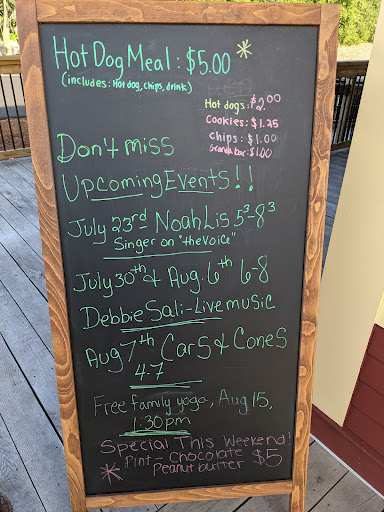 Hot Dog Meal: $5.00
(includes: Hot dog, chips, drink)
Hot dogs: $2.00
Cookies: $1.25
Chips: $1.00
Granola bar: $1.00
Don't miss
Upcoming Events!!
July 23rd Noah Lis 5³-8³
Singer on "the Voice"
July 30th & Aug. 6th 6-8
Debbie Sali-Live music
Aug 7th Cars & Cones
4-7
Free family yoga, Aug 15,
1:30pm
Special This Weekend!
Pint - Chocolate $5
Peanut butter